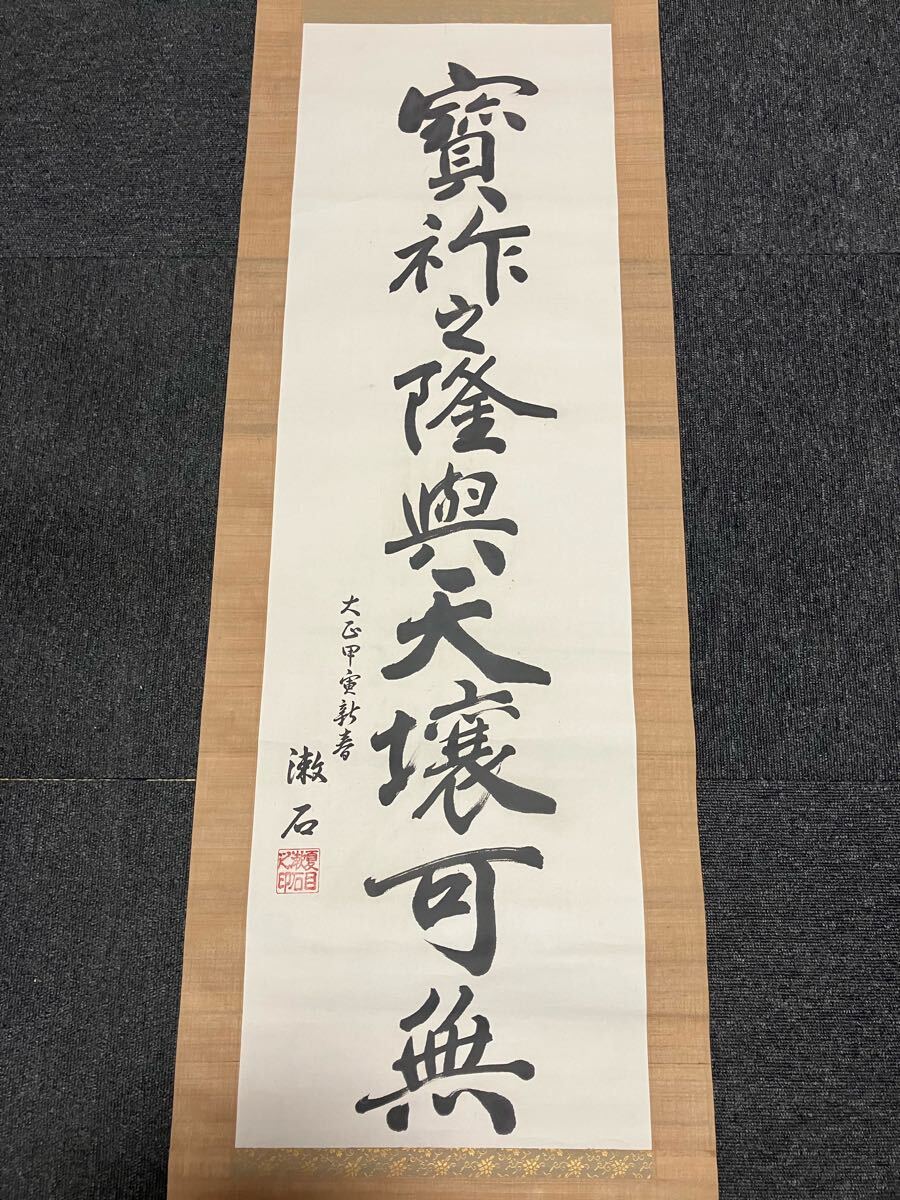 寶祚之隆與天壤可無
大正甲寅新春
漱石
夏目漱石之印